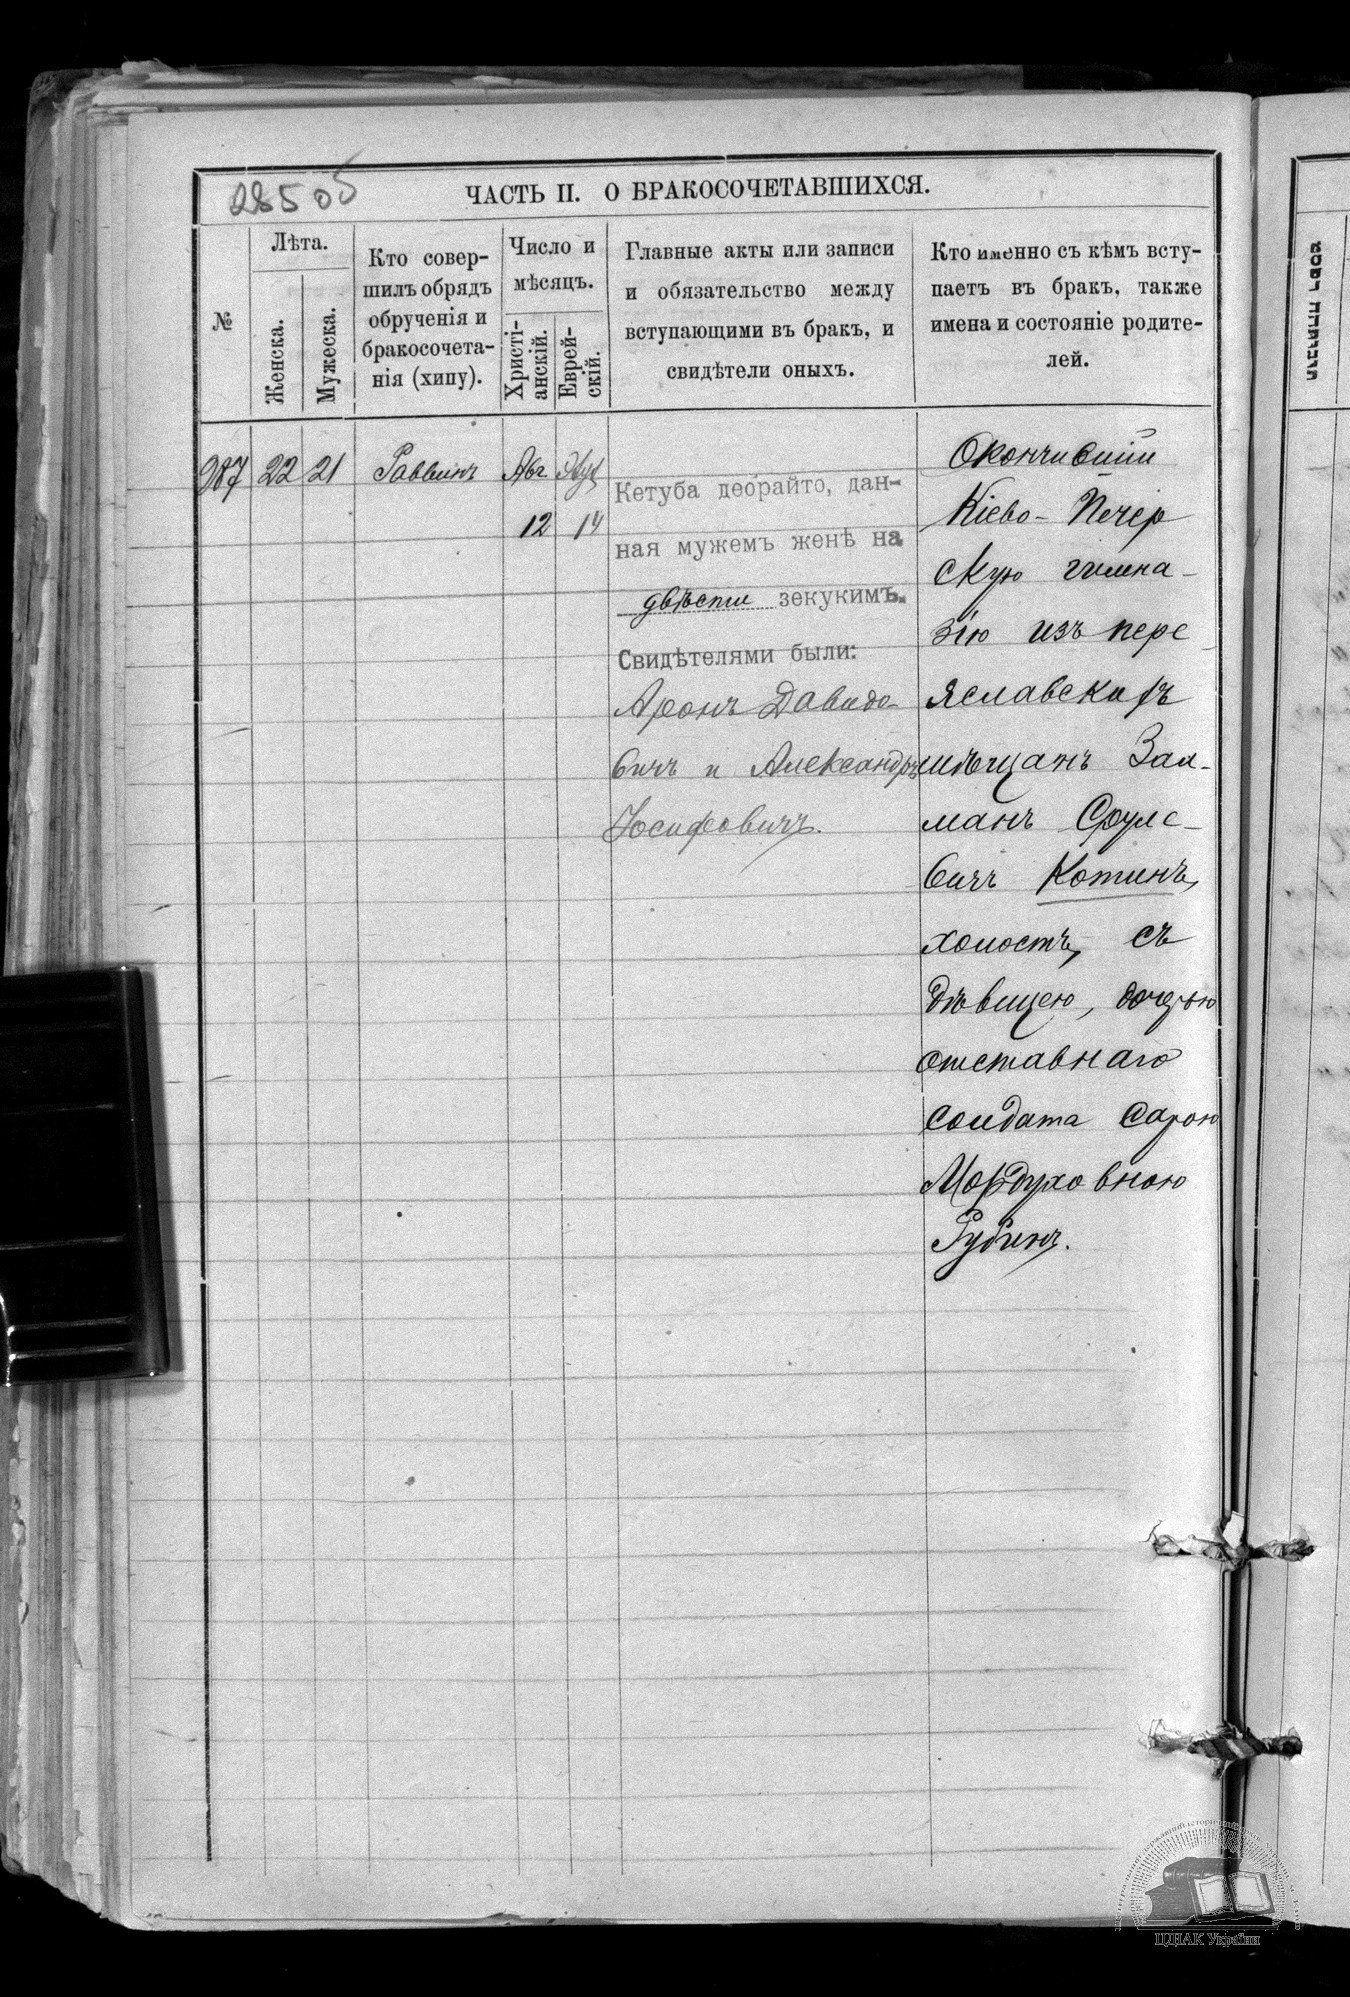 28505
ЧАСТЬ II. О БРАКОСОЧЕТАВШИХСЯ.
№
Лѣта.
Женска.
Мужеска.
Кто совер-
шилъ обрядъ
обрученія и
бракосочета-
нія (хипу).
Число и
мѣсяцъ.
Христі-
анскій.
Еврей-
скій.
Главные акты или записи
и обязательство между
вступающими въ бракъ, и
свидѣтели оныхъ.
Кто именно съ кѣмъ всту-
паетъ въ бракъ, также
имена и состояніе родите-
лей.
987 22 21 Раввинъ Авг
12 14
Кетуба деорайто, дан-
ная мужемъ женѣ на
двѣсти зекукимъ.
Свидѣтелями были:
Аронъ Давидо-
вичъ и Александръ
Іосифовичъ.
Окончившій
Кіево-Печер
скую гимна-
зію изъ пере
яславскихъ
мѣщанъ Зал-
манъ Сруле-
вичъ Котинъ,
холостъ, съ
дѣвицею, дочерью
отставнаго
солдата Сарою
Мордуховною
Рубинъ.
ЦДІАК України